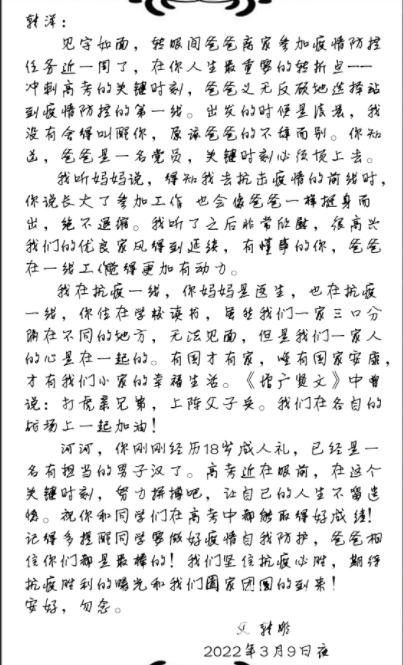 韩洋：
见字如面，转眼间爸爸离家参加疫情防控
任务近一周了，在你人生最重要的转折点——
冲刺高考的关键时刻，爸爸义无反顾地选择站
到疫情防控的第一线。出发的时候是凌晨，我
没有舍得叫醒你，原谅爸爸的不辞而别。你知
道，爸爸是一名党员，关键时刻必须顶上去。
我听妈妈说，得知我去抗击疫情的前线时，
你说长大了参加工作 也会像爸爸一样挺身而
出，绝不退缩。我听了之后非常欣慰，很高兴
我们的优良家风得到延续，有懂事的你，爸爸
在一线工作觉得更加有动力。
我在抗疫一线，你妈妈是医生，也在抗疫
一线，你住在学校读书，虽然我们一家三口分
隔在不同的地方，无法见面，但是我们一家人
的心是在一起的。有国才有家，唯有国家安康，
才有我们小家的幸福生活。《增广贤文》中曾
说：打虎亲兄弟，上阵父子兵。我们在各自的
战场上一起加油！
河河，你刚刚经历18岁成人礼，已经是一
名有担当的男子汉了。高考近在眼前，在这个
关键时刻，努力拼搏吧，让自己的人生不留遗
憾。祝你和同学们在高考中都能取得好成绩！
记得多提醒同学要做好疫情自我防护，爸爸相
信你们都是最棒的！我们坚信抗疫必胜，期待
抗疫胜利的曙光和我们阖家团圆的到来！
安好，勿念。
父 韩
2022年3月9日夜